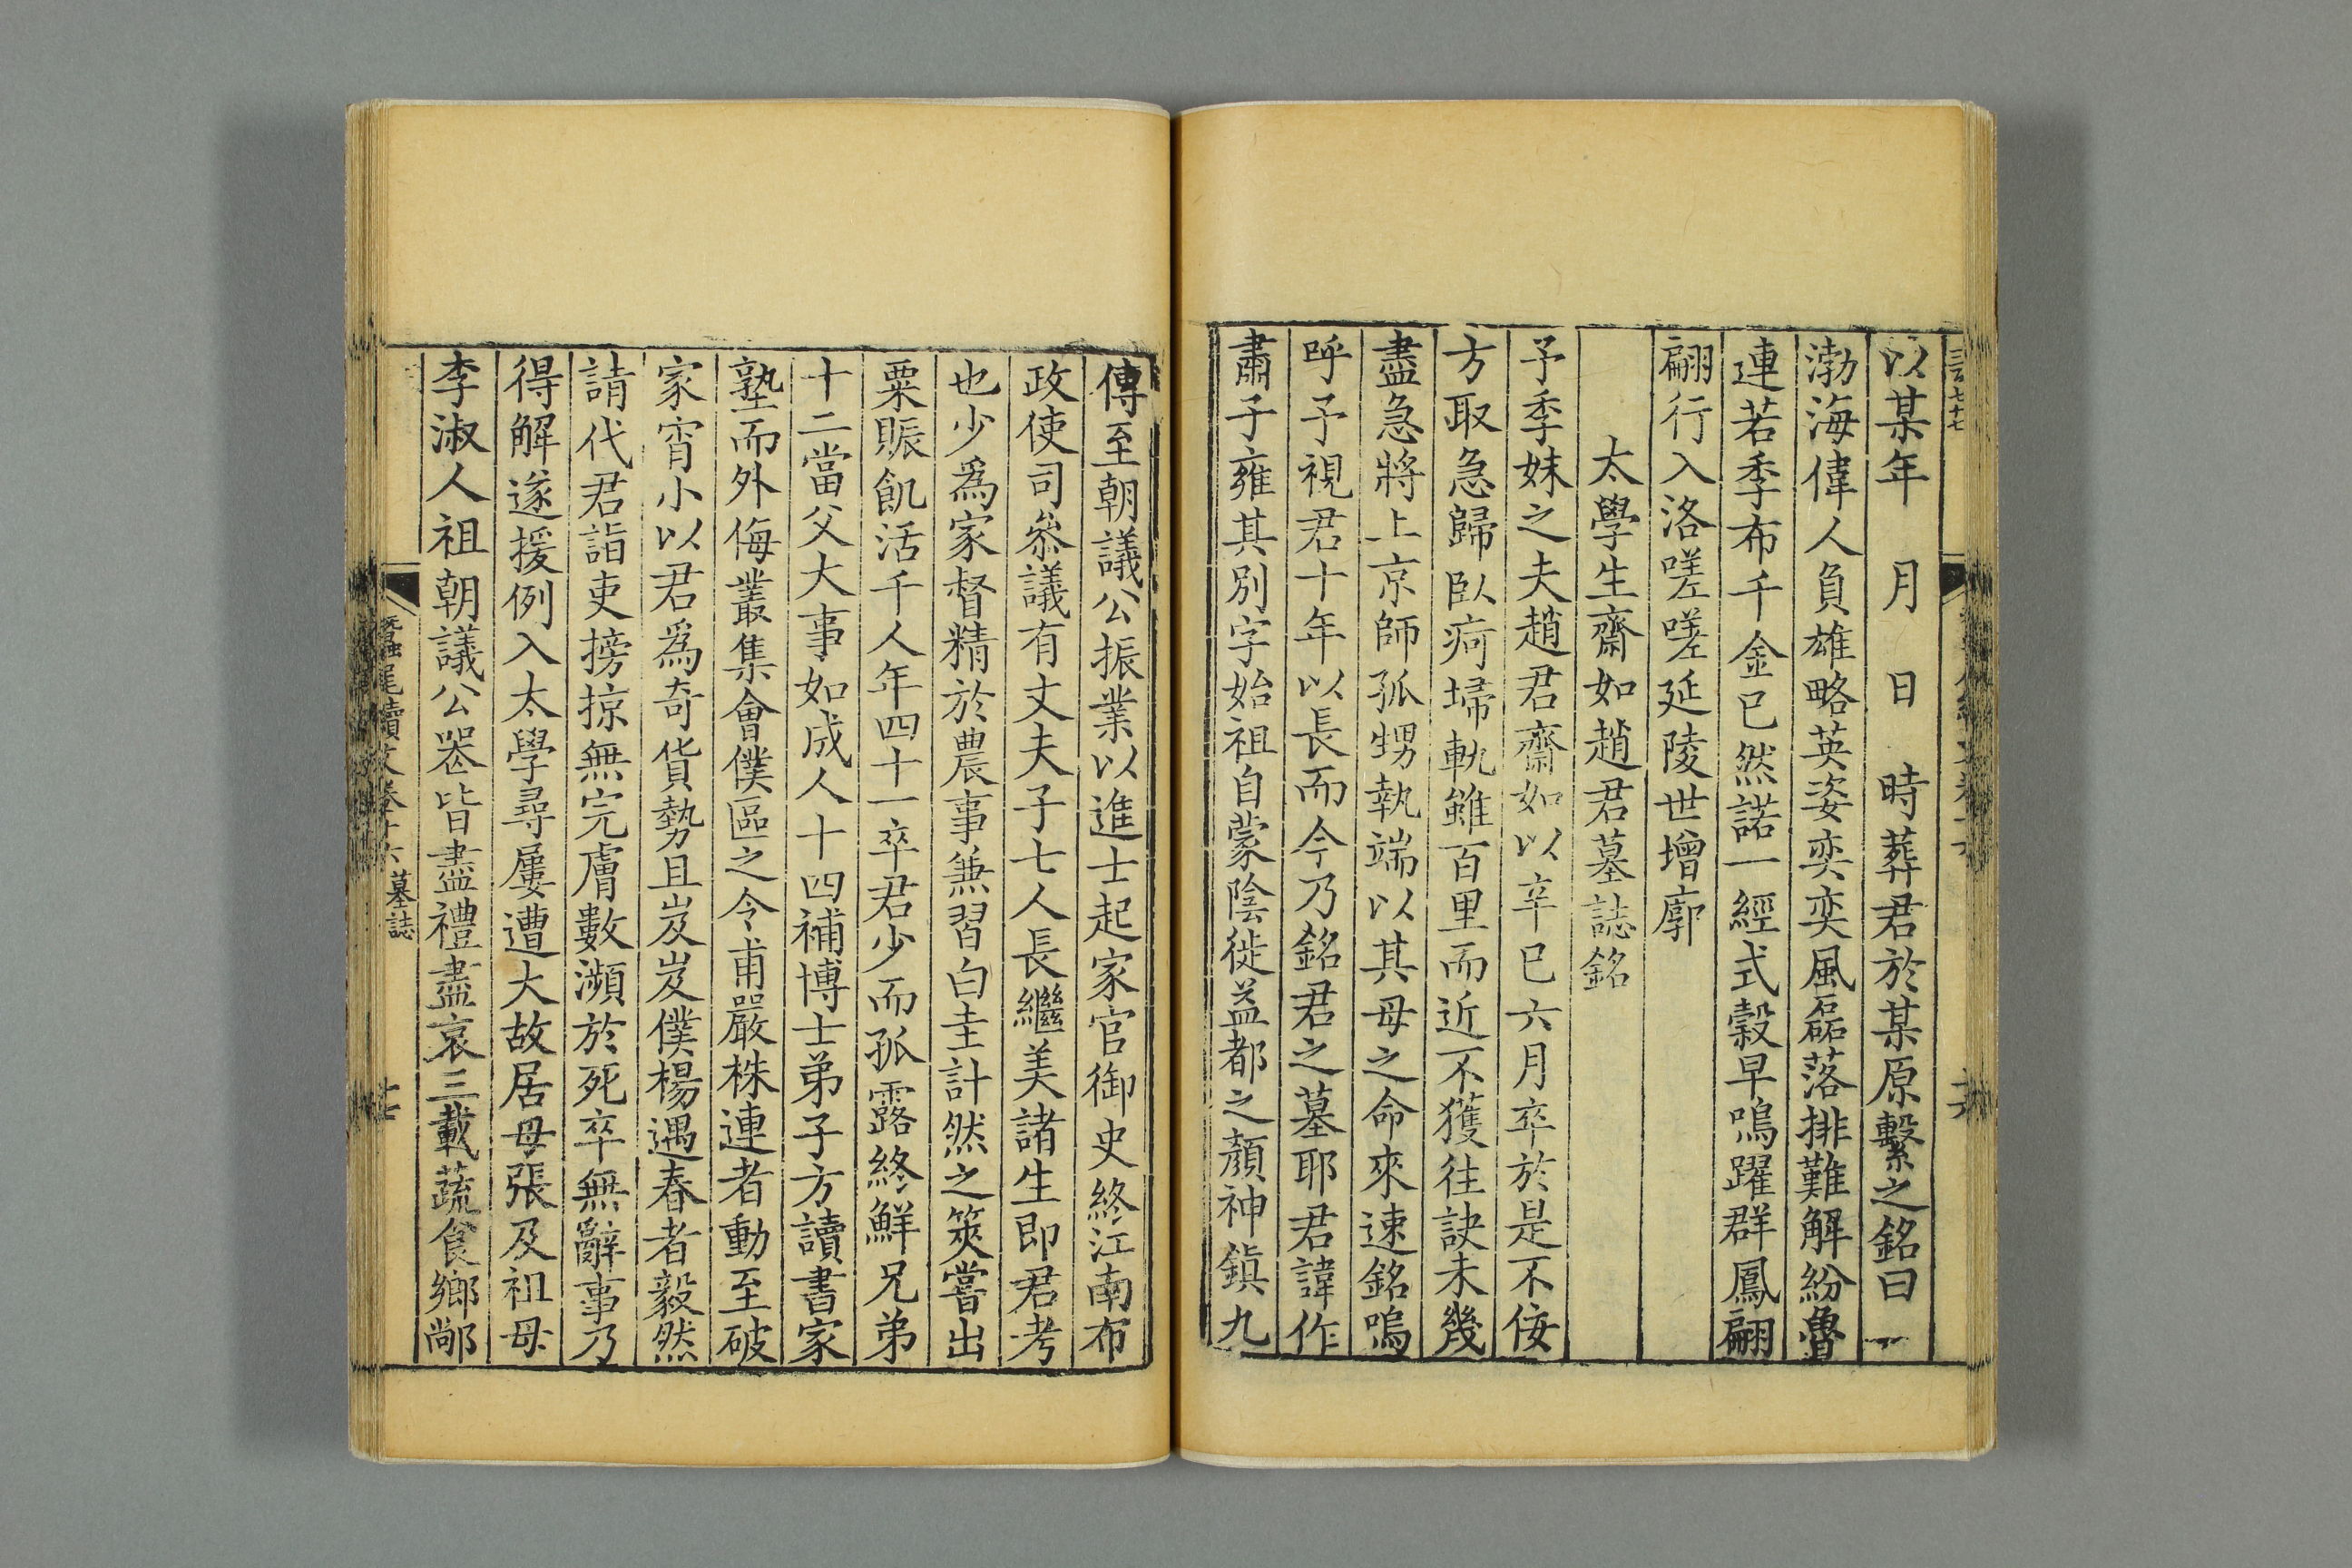 以某年　月　日　時葬君於某原繫之銘曰
渤海偉人負雄略英姿奕奕風磊落排難解紛魯
連若季布千金已然諾一經式穀早鳴躍群鳳翩
翩行入洛嗟嗟延陵世增廓
太學生齋如趙君墓誌銘
予季妹之夫趙君齋如以辛巳六月卒於是不佞
方取急歸臥疴埽軌雖百里而近不獲往訣未幾
盡急將上京師孤甥執端以其母之命來速銘嗚
呼予視君十年以長而今乃銘君之墓耶君諱作
肅子雍其別字始祖自蒙陰徙益都之顏神鎮九
傳至朝議公振業以進士起家官御史終江南布
政使司叅議有丈夫子七人長繼美諸生即君考
也少爲家督精於農事兼習白圭計然之筴嘗出
粟賑飢活千人年四十一卒君少而孤露終鮮兄弟
十二當父大事如成人十四補博士弟子方讀書家
塾而外侮叢集會僕區之令甫嚴株連者動至破
家宵小以君爲奇貨勢且岌岌僕楊遇春者毅然
請代君詣吏搒掠無完膚數瀕於死卒無辭事乃
得解遂援例入太學尋屢遭大故居母張及祖母
李淑人祖朝議公喪皆盡禮盡哀三載蔬食鄉鄰
蠶尾續文卷十六 墓誌
十七